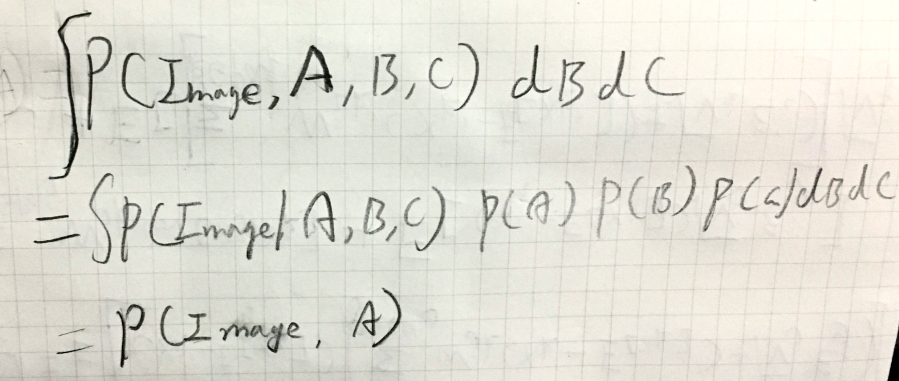 ∫P(Image, A, B, C) dBdC
= ∫P(Image| A, B, C) P(A) P(B) P(C) dBdC
= P(Image, A)